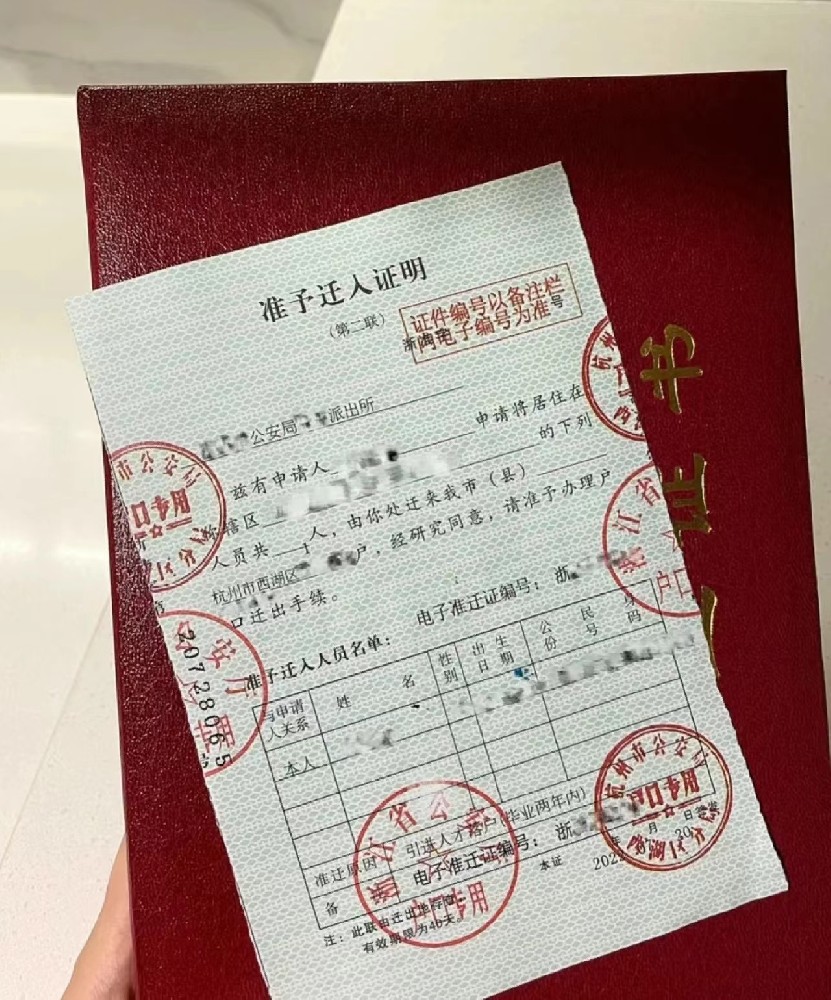 准予迁入证明
（第二联）
证件编号以备注栏
内电子编号为准
号
公安局 派出所
兹有申请人 申请将居住在
你辖区 的下列
人员共 1 人，由你处迁来我市（县）
杭州市西湖区 户，经研究同意，请准予办理户
口迁出手续。
电子准迁证编号：浙
准予迁入人员名单：
与申请人关系 姓 名 性别 出生日期 公民身份号码
本人
准迁原因 引进人才落户(毕业两年内)
备 电子准迁证编号：浙
注：此联由迁出地存留
有效期限为40天。
本证
20728065
市公安局
户口专用
浙江省
户口
江省公
户口专用
杭州市公安局
户口专用
西湖区分局
证书